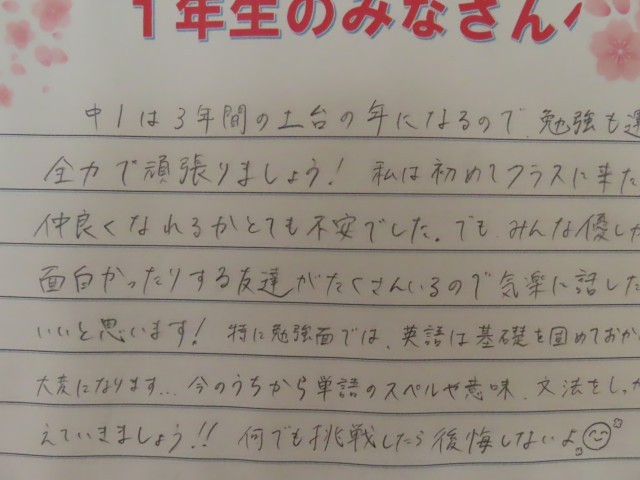 1年生のみなさんへ
中1は3年間の土台の年になるので、勉強も運
全力で頑張りましょう! 私は初めてクラスに来た
仲良くなれるかとても不安でした。でも、みんな優し
面白かったりする友達がたくさんいるので気楽に話した
いいと思います! 特に勉強面では、英語は基礎を固めておか
大変になります... 今のうちから単語のスペルや意味、文法をしっか
えていきましょう!! 何でも挑戦したら後悔しないよ。